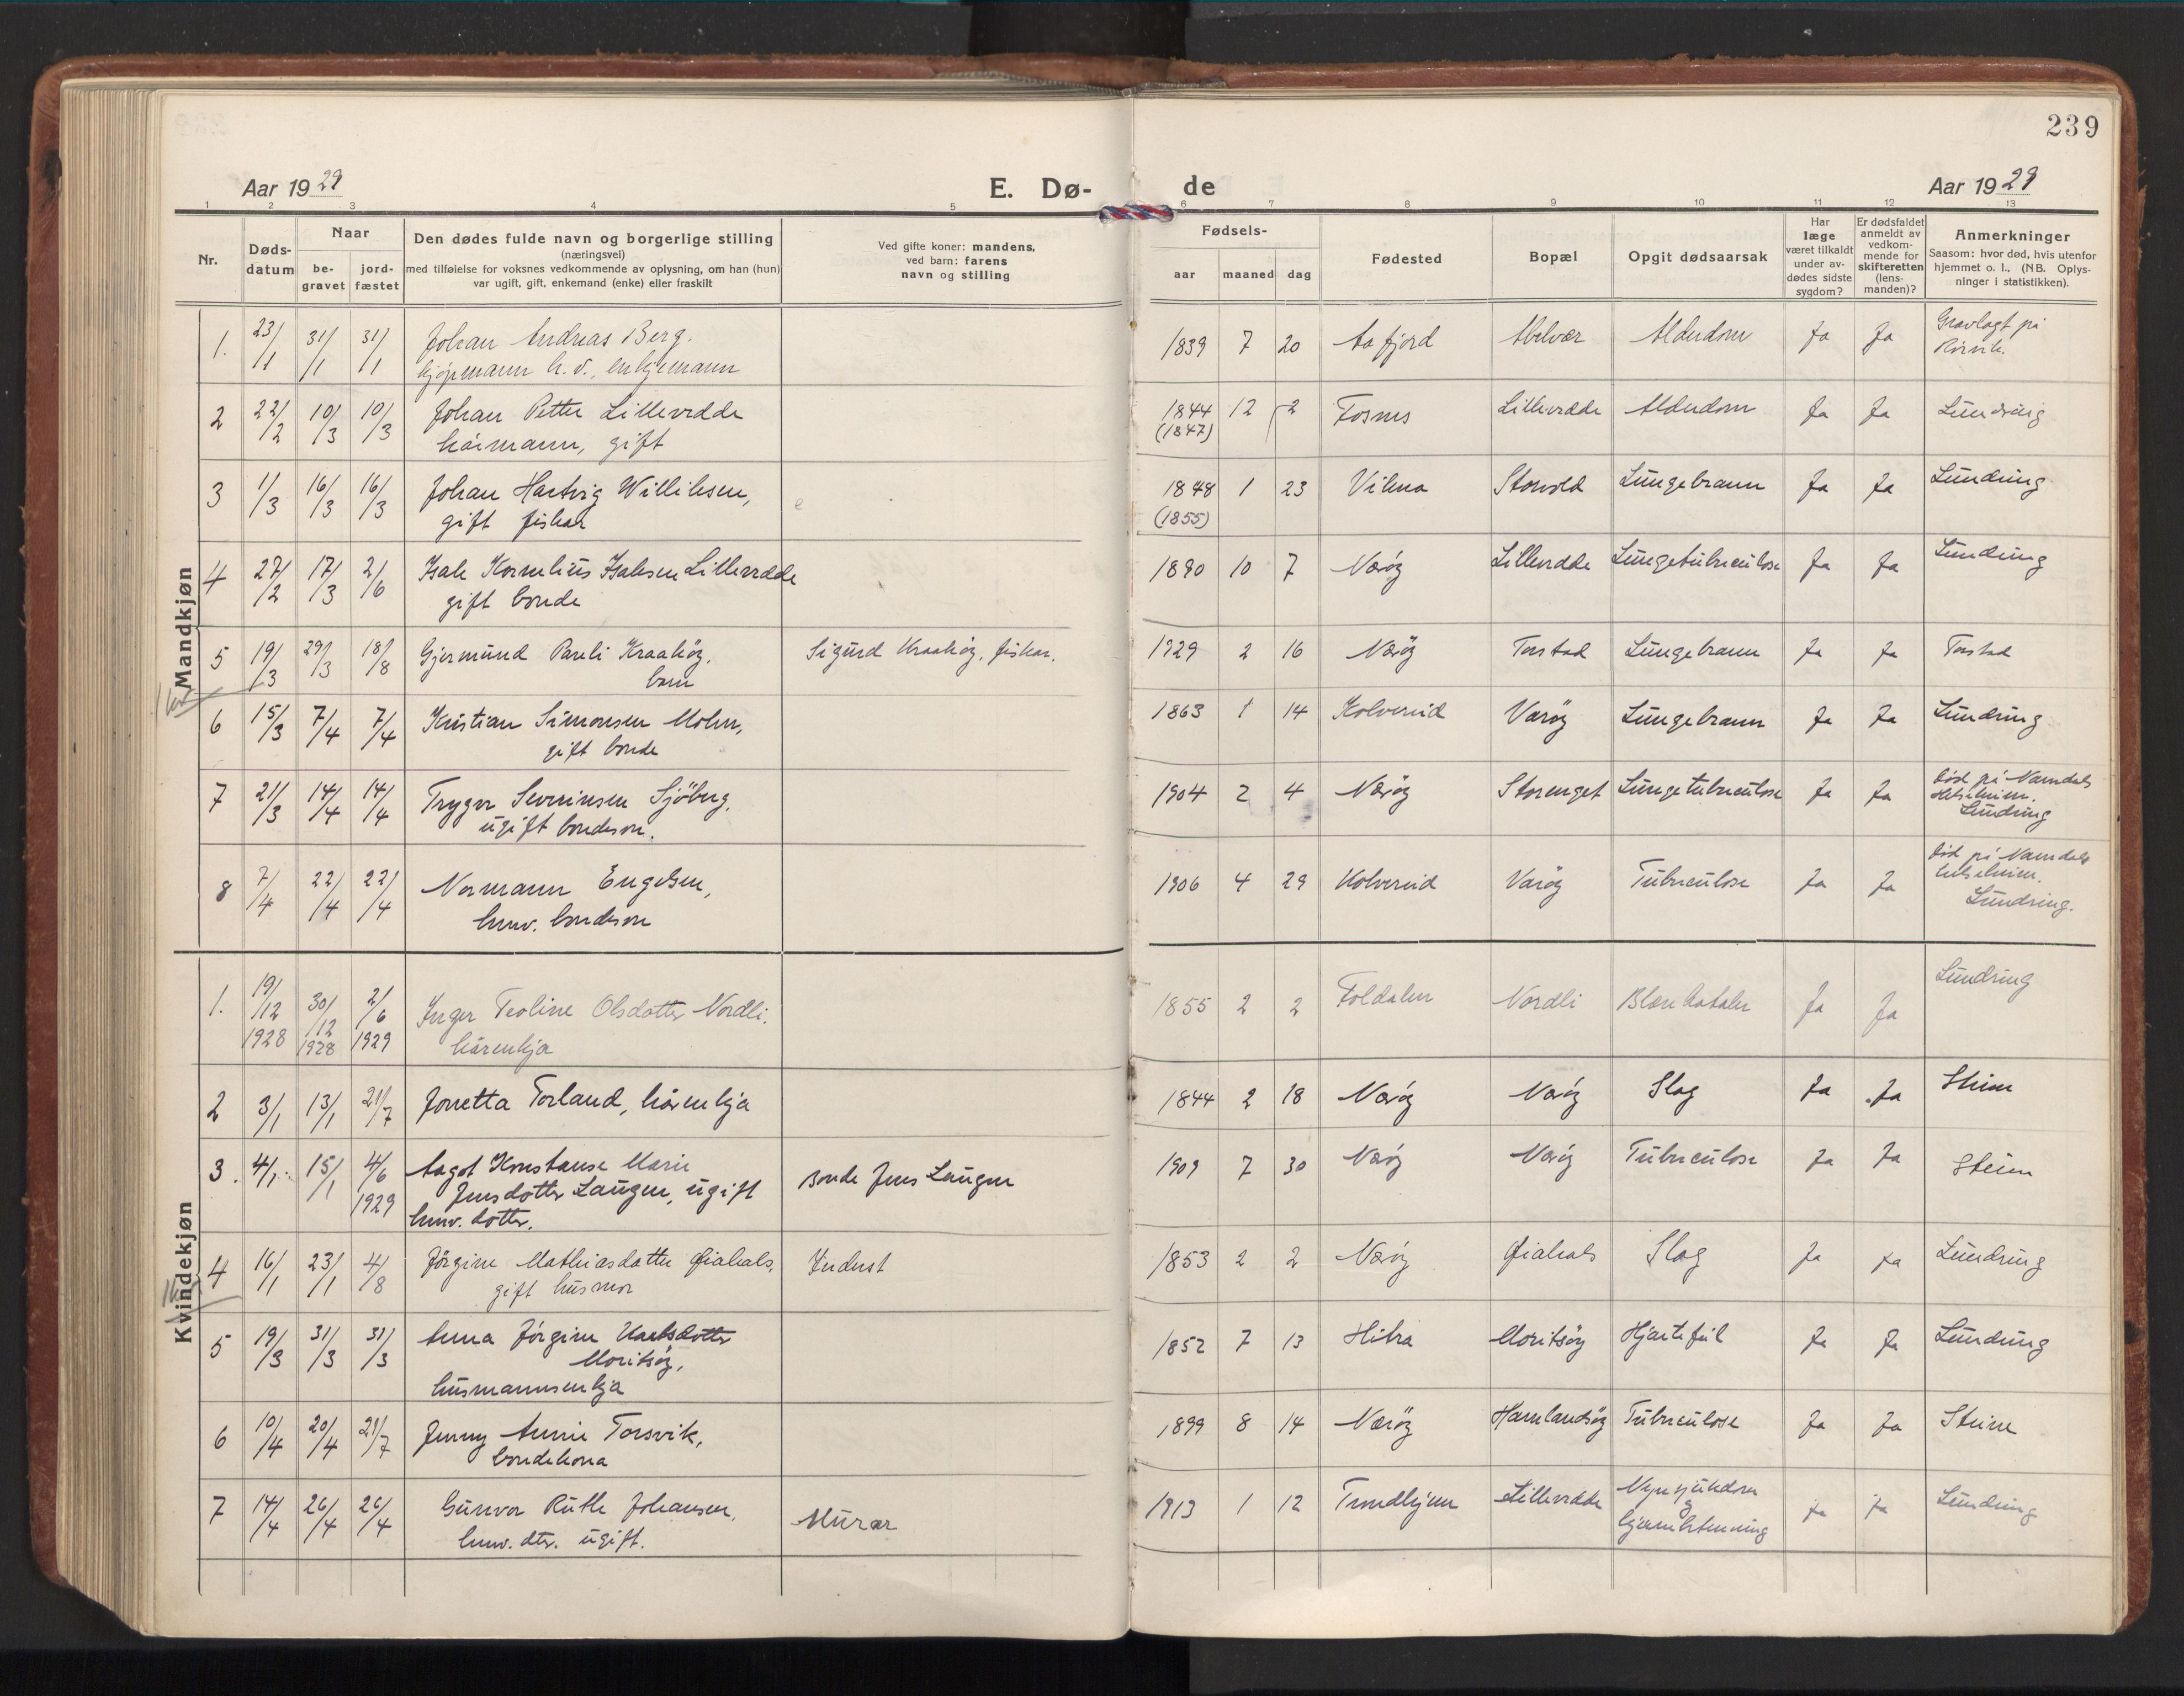 239
Aar 1929
E. Dø-
de
Aar 1929
1 2 3 4 5 6 7 8 9 10 11 12 13
Nr.
Døds-
datum
Naar
be-
gravet
jord-
fæstet
Den dødes fulde navn og borgerlige stilling
(næringsvei)
med tilføielse for voksnes vedkommende av oplysning, om han (hun)
var ugift, gift, enkemand (enke) eller fraskilt
Ved gifte koner: mandens,
ved barn: farens
navn og stilling
Fødsels-
aar maaned dag
Fødested
Bopæl
Opgit dødsaarsak
Har
læge
været tilkaldt
under av-
dødes sidste
sygdom?
Er dødsfaldet
anmeldt av
vedkom-
mende for
skifteretten
(lens-
manden)?
Anmerkninger
Saasom: hvor død, hvis utenfor
hjemmet o. l., (NB. Oplys-
ninger i statistikken).
Mandkjøn
1. 23/1 31/1 31/1 Johan Andreas Berg. 1839 7 20 Aafjord Abelvær Alderdom Ja Ja Gravlagt på
kjøpmann h.v., enkjemann Rörvik.
2 22/2 10/3 10/3 Johan Petter Lillevedde 1844 12 2 Fosnes Lillevedde Alderdom Ja Ja Lundring
kårmann, gift (1847)
3 1/3 16/3 16/3 Johan Hartvig Willihsen, 1848 1 23 Vikna Storvold Lungebrann Ja Ja Lundring
gift fiskar (1855)
4 27/2 17/3 2/6 Isak Kornelius Isaksen Lillevedde 1890 10 7 Næröy Lillevedde Lungetuberculose Ja Ja Lundring
gift bonde
5 19/3 29/3 18/8 Gjermund Pareli Kraaköy. Sigurd Kraaköy, fiskar. 1929 2 16 Næröy Torstad Lungebrann Ja Ja Torstad
barn
6 15/3 7/4 7/4 Kristian Simonsen Mohn, 1863 1 14 Kolvereid Varöy Lungebrann Ja Ja Lundring
gift bonde
7 21/3 14/4 14/4 Trygve Severinsen Sjöberg, 1904 2 4 Næröy Storenget Lungetuberculose Ja Ja Död på Namdals
ugift bondeson. Helseheim.
Lundring
8 7/4 22/4 22/4 Normann Engelsen, 1906 4 29 Kolvereid Varöy Tuberculose Ja Ja Död på Namdals
hmv. bondeson helseheim.
Lundring.
Kvindekjøn
1. 19/12 1928 30/12 1928 2/6 1929 Inger Teoline Olsdotter Nordli. 1855 2 2 Foldalen Nordli Blærekatahr Ja Ja Lundring
kårenkja
2 3/1 13/1 21/7 Jonetta Torland, kårenkja 1844 2 18 Næröy Næröy Slag Ja Ja Steine
3. 4/1 15/1 4/6 1929 Aagot Konstanse Marie Bonde Jens Laugen 1909 7 30 Næröy Næröy Tuberculose Ja Ja Steine
Jensdotter Laugen, ugift
hmv. dotter.
4 16/1 23/1 4/8 Jörgine Mathiasdatter Øiahals, Inderst 1853 2 2 Næröy Øiahals Slag Ja Ja Lundring
gift husmor
5 19/3 31/3 31/3 Anna Jörgine Karlsdotter 1852 7 13 Hitra Moritsöy Hjartefeil Ja Ja Lundring
Moritsöy,
husmannsenkja
6 10/4 20/4 21/7 Jenny Annie Torsvik, 1899 8 14 Næröy Hamlandsöy Tuberculose Ja Ja Steine
bondekona
7 14/4 26/4 26/4 Gunvor Ruth Johansen, Murar 1913 1 12 Trondhjem Lillevedde Nyresjukdom Ja Ja Lundring
hmv. dtr. ugift. og
hjernebetenning